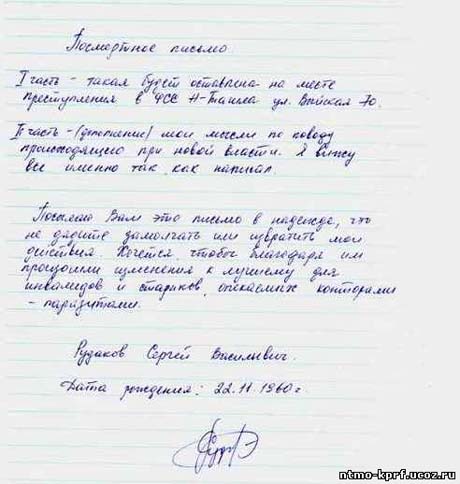 Посмертное письмо
I часть – такая будет оставлена на месте
преступления в ФСС Н-Тагила ул. Выйская 70.
II часть – (дополнение) мои мысли по поводу
происходящего при новой власти. Я вижу
всё именно так как написал.
Посылаю Вам это письмо в надежде, что
не дадите замолчать или извратить мои
действия. Хочется, чтобы благодаря им
произошли изменения к лучшему для
инвалидов и стариков, опекаемых конторами
– паразитами.
Рудаков Сергей Васильевич.
Дата рождения: 22.11.1960г.
ntmo-kprf.ucoz.ru